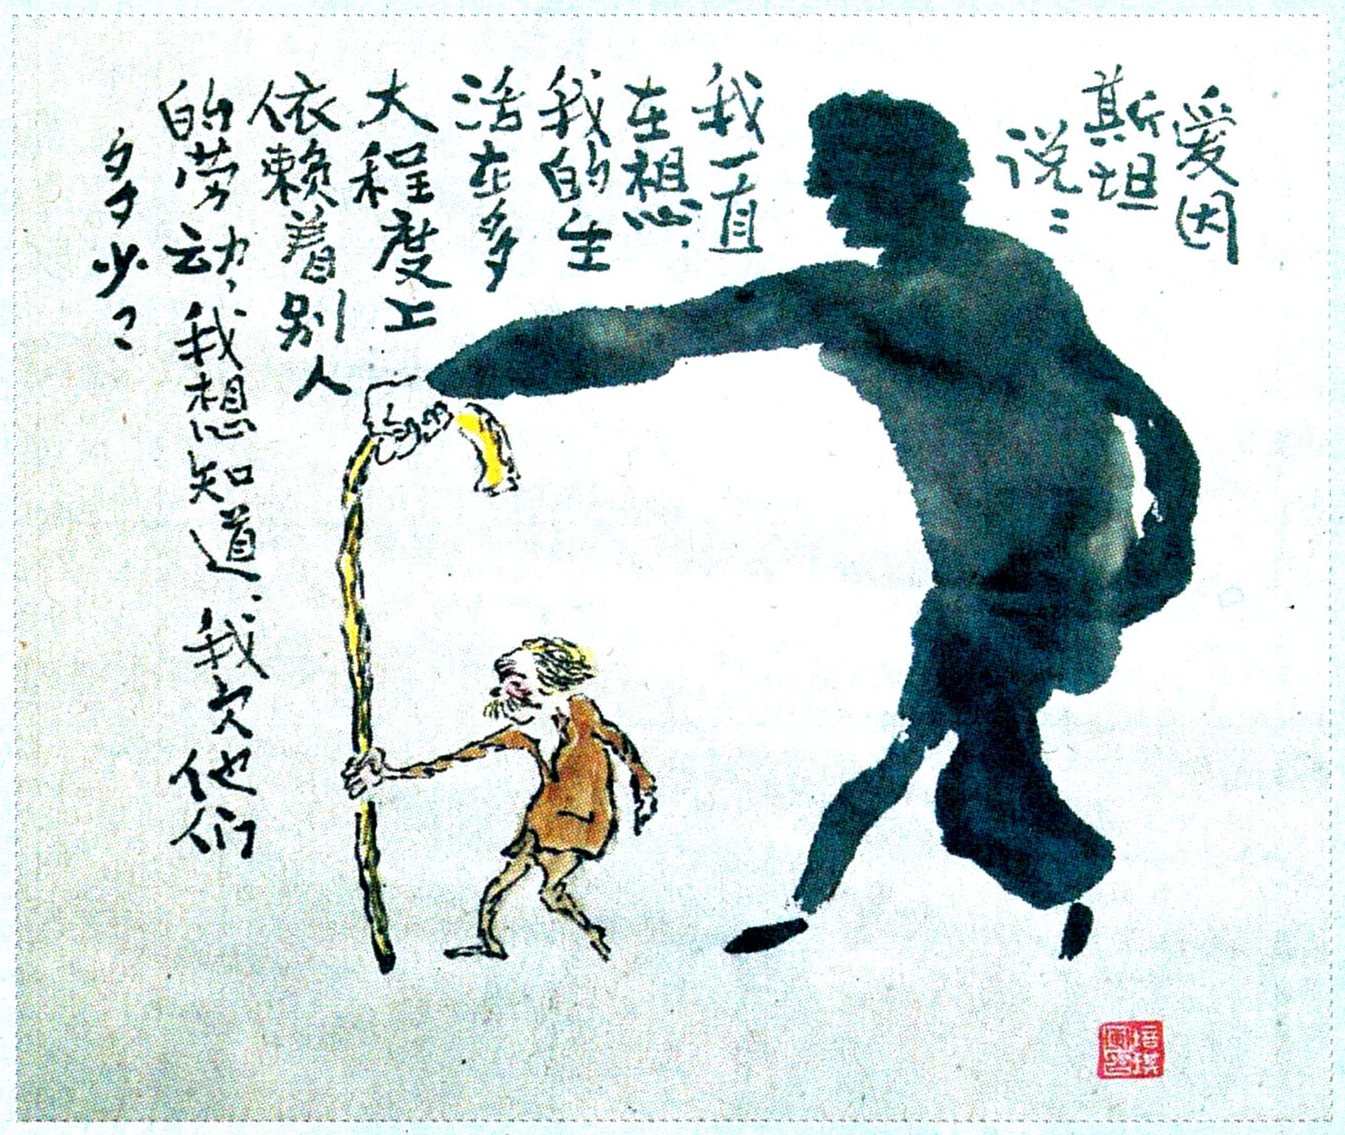 爱因
斯坦
说：
我一直
在想，
我的生
活在多
大程度上
依赖着别人
的劳动，我想知道，我欠他们
多少？